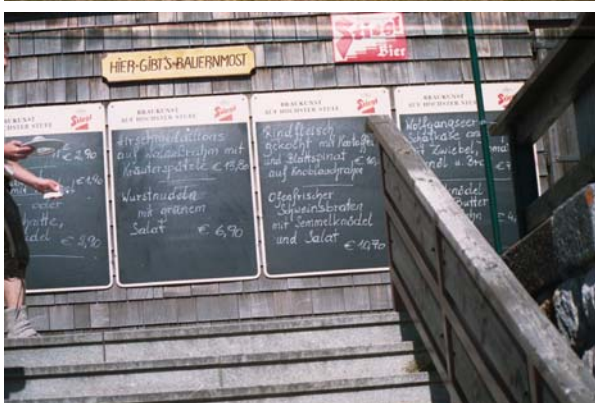 HIER·GIBT'S·BAUERNMOST
Stiegl
Bier
BRAUKUNST
AUF HÖCHSTER STUFE
Stiegl
€ 2,90
€ 1,90
oder
€ 2,90
BRAUKUNST
AUF HÖCHSTER STUFE
Stiegl
auf mit
Kräuterspätzle € 13,80
Wurstnudeln
mit grünem
Salat € 6,90
BRAUKUNST
AUF HÖCHSTER STUFE
Stiegl
Rindfleisch
gekocht mit Kartoffel
und Blattspinat
auf Knoblauchrahm
Ofenfrischer
Schweinsbraten
mit Semmelknödel
und Salat € 10,70
BRAUKUNST
AUF HÖCHSTER STUFE
Wolfgangseer
Schafkäse
mit Zwiebel,
u. Brot
Butter